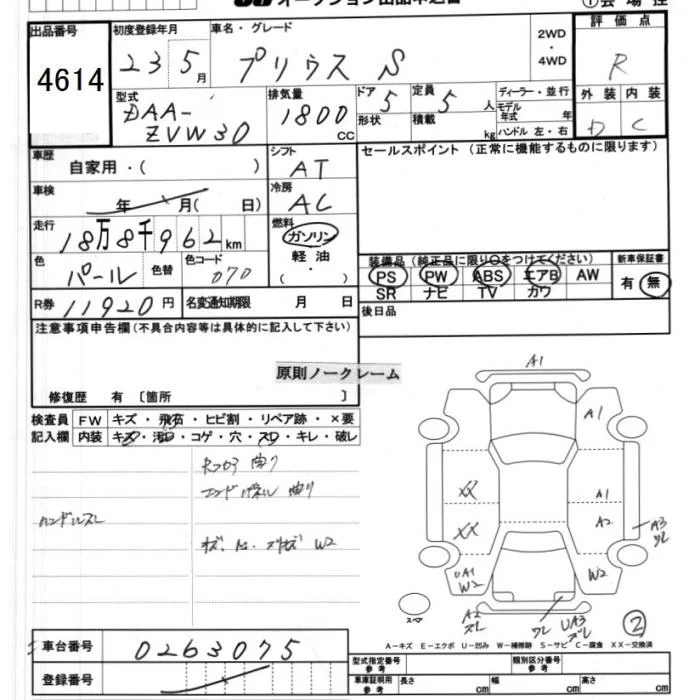 出品番号 初度登録年月 車名・グレード 2WD・4WD 評価点
4614 23 5月 プリウス S R
型式 排気量 ドア 定員 ディーラー・並行 外装 内装
DAA-ZVW30 1800CC 5 形状 5人 積載 kg モデル年式 年 ハンドル 左・右 D C
車歴 自家用・( ) シフト AT セールスポイント (正常に機能するものに限ります)
車検 年 月( 日) 冷房 AC
走行 18万8千962km 燃料 ガソリン 軽油 ( ・ )
色 パール 色替 色コード 070
装備品 (純正品に限り○をつけてください) 新車保証書
PS PW ABS エアB AW 有 無
SR ナビ TV カワ
R券 11920円 名変通知期限 月 日 後日品
注意事項申告欄 (不具合内容等は具体的に記入して下さい)
原則ノークレーム
修復歴 有 〔箇所 〕
検査員記入欄 FW キズ・飛石・ヒビ割・リペア跡・×要
内装 キズ・汚れ・コゲ・穴・スレ・キレ・破レ
曲り
曲り
ハンドルスレ
W2
A1
A1
XX A1
XX A2 A3 スレ
UA1 W2 W2
スペア A2 スレ ワレ UA3 スレ 2
A-キズ E-エクボ U-凹み W-補修跡 S-サビ C-腐食 XX-交換済
車台番号 0263075
型式指定番号 参考 類別区分番号 参考
登録番号
車庫証明用 参考 長さ cm 幅 cm 高さ cm